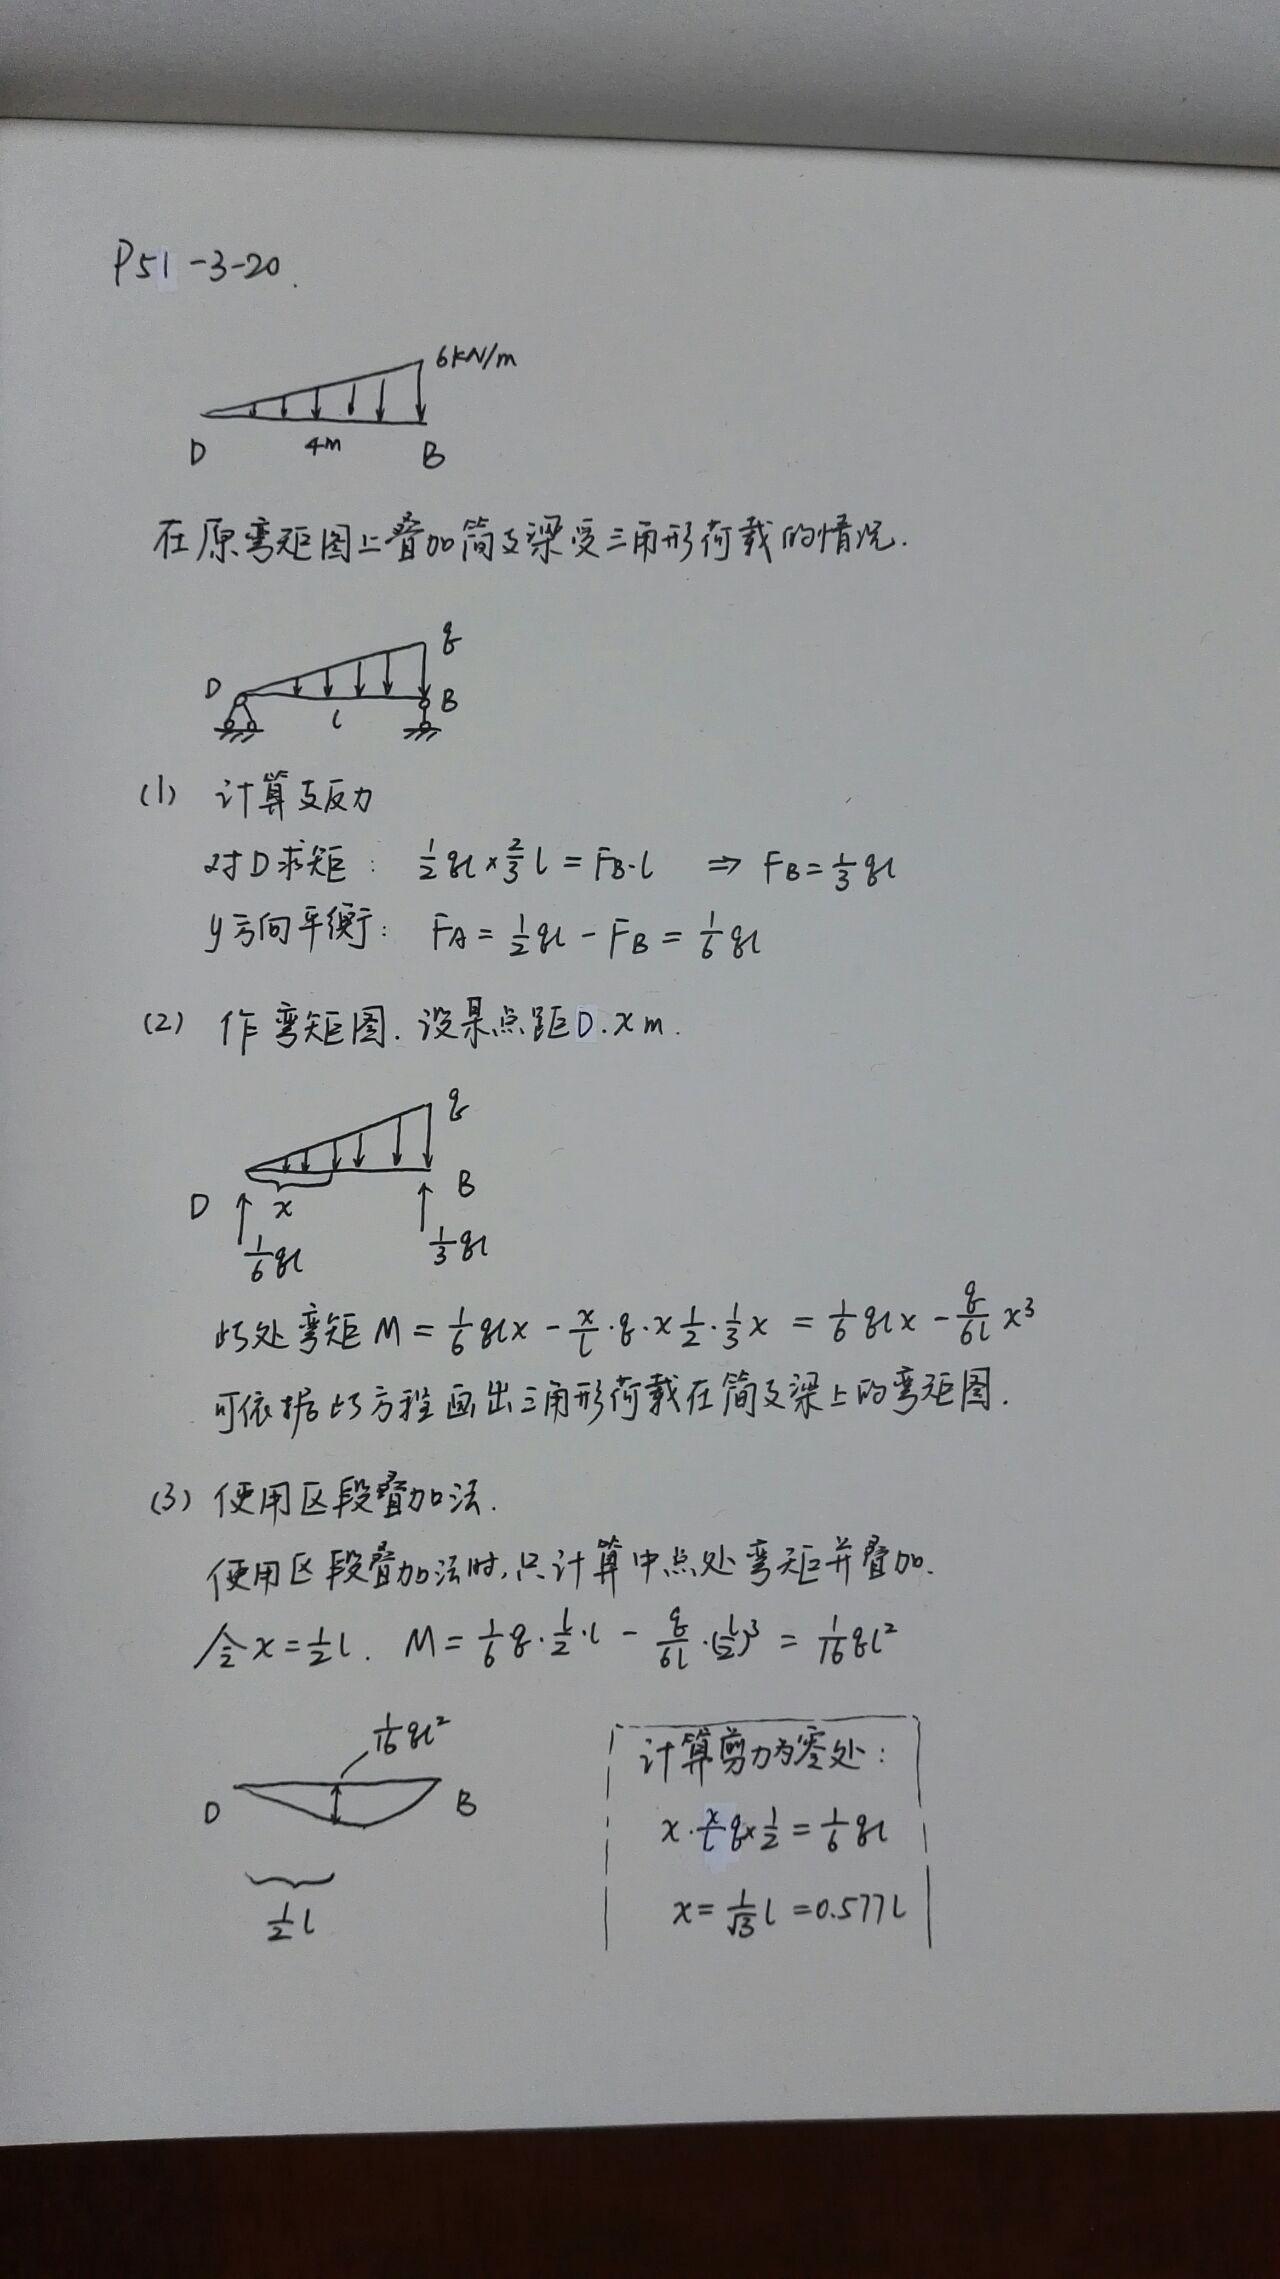 P51-3-20.
6kN/m
D 4m B
在原弯矩图上叠加简支梁受三角形荷载的情况.
q
D l B
(1) 计算支反力
对D求矩: 1/2 ql × 2/3 l = FB·l ⇒ FB = 1/3 ql
y方向平衡: FA = 1/2 ql - FB = 1/6 ql
(2) 作弯矩图. 设某点距D.x m.
q
D x B
1/6 ql 1/3 ql
此处弯矩 M = 1/6 qlx - x/l · q · x 1/2 · 1/3 x = 1/6 qlx - q/6l x³
可依据此方程画出三角形荷载在简支梁上的弯矩图.
(3) 使用区段叠加法.
使用区段叠加法时,只计算中点处弯矩并叠加.
令 x = 1/2 l. M = 1/6 q · l/2 · l - q/6l · (l/2)³ = 1/16 ql²
1/16 ql²
D B
1/2 l
计算剪力为零处:
x · x/l q × 1/2 = 1/6 ql
x = 1/√3 l = 0.577l